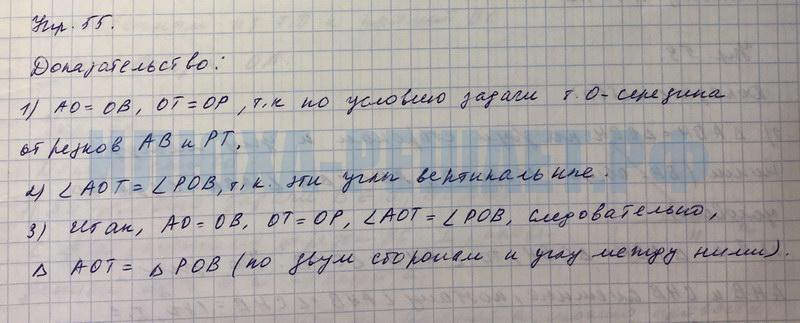 Упр. 55.
Доказательство:
1) AO = OB, OT = OP, т.к по условию задачи т. O - середина
отрезков AB и PT.
2) ∠AOT = ∠POB, т.к. эти углы вертикальные.
3) Итак, AO = OB, OT = OP, ∠AOT = ∠POB, следовательно,
△ AOT = △ POB (по двум сторонам и углу между ними).